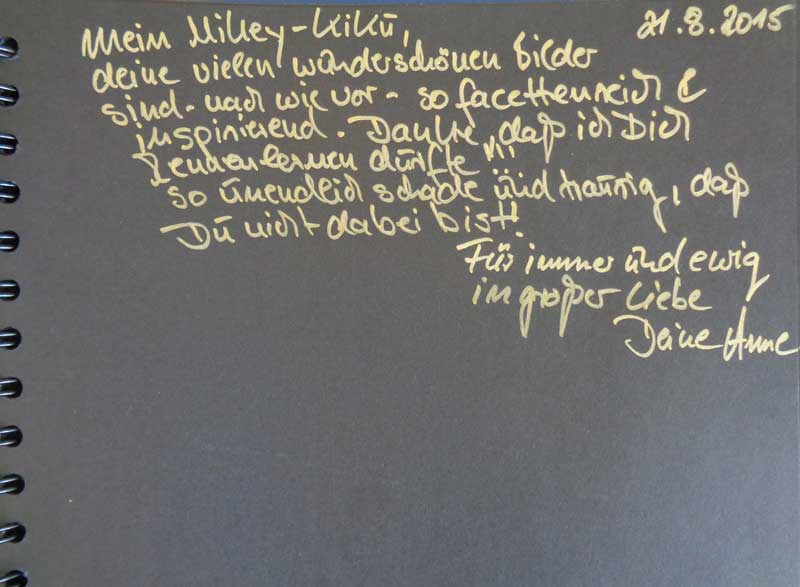 21.8.2015
Mein Mikey-Kiku,
deine vielen wunderschönen Bilder
sind - nach wie vor - so facettenreich &
inspirierend. Danke, daß ich Dich
kennenlernen durfte!!!
so unendlich schade und traurig, daß
Du nicht dabei bist!
Für immer und ewig
in großer Liebe
Deine Anne